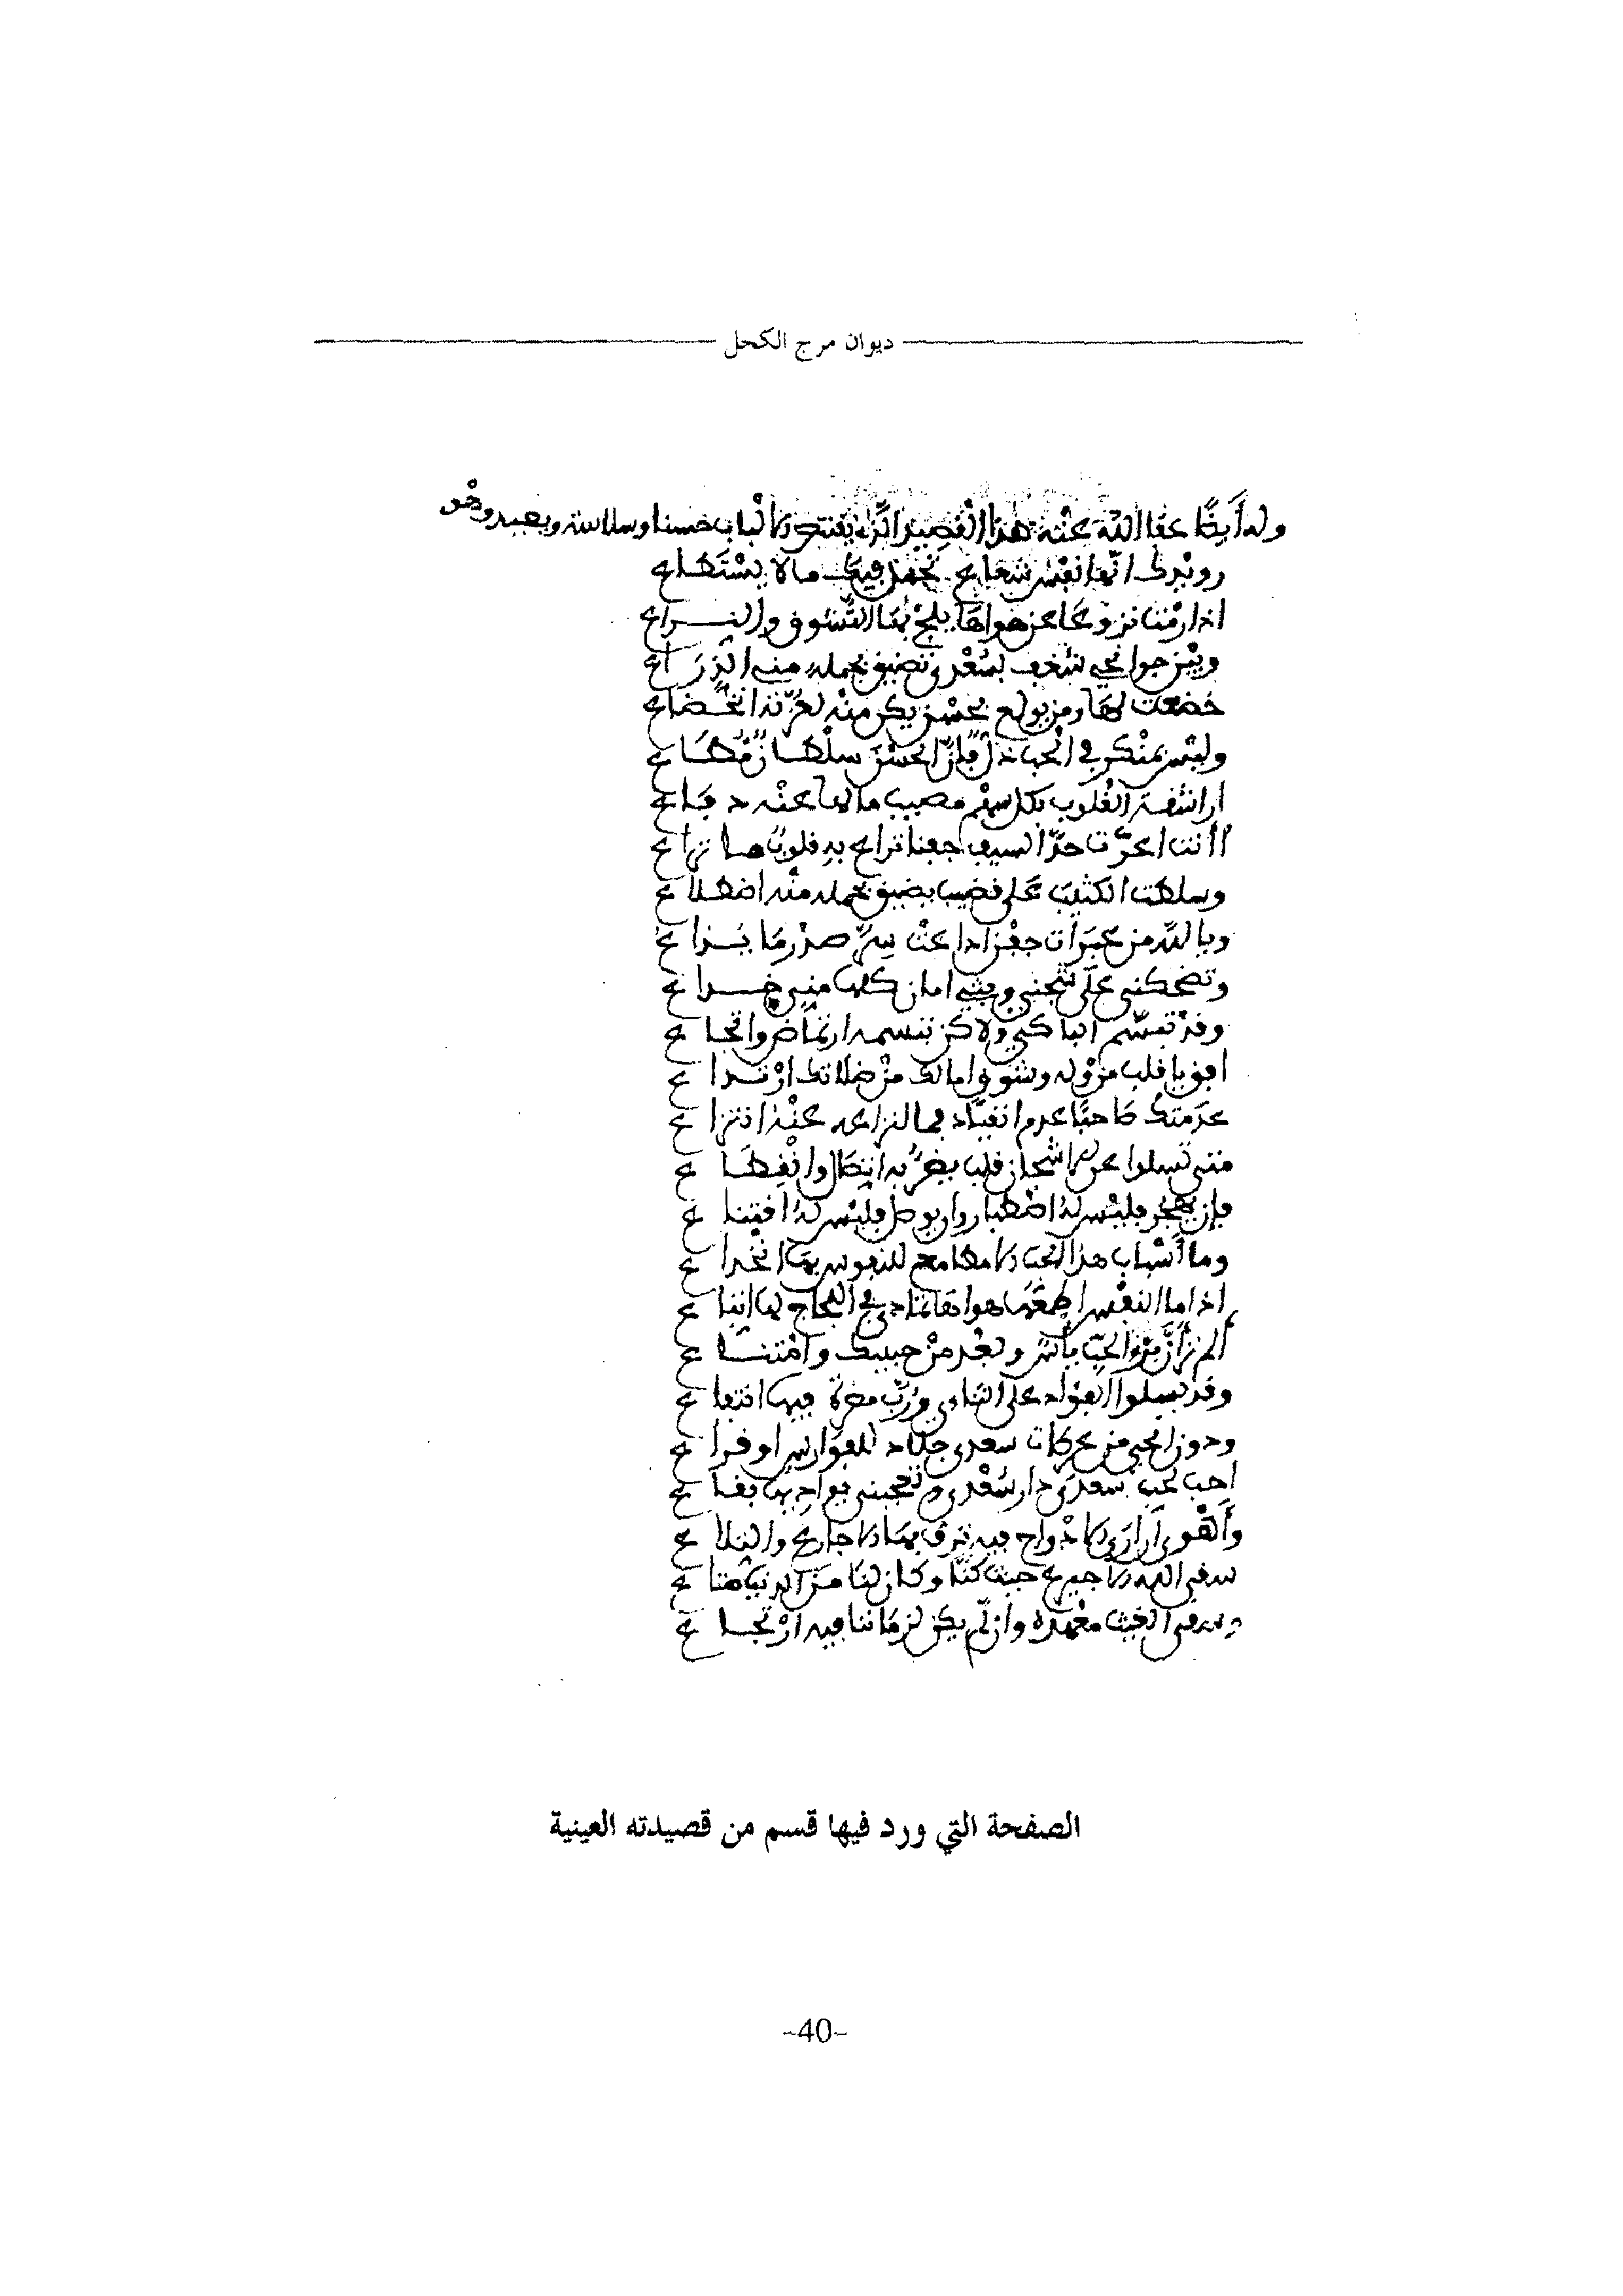 ديوان مرج الكحل
وله أيضًا عفا الله عنه هذا القصيد الذي يفتتح الألباب حسنا وسلاسة
رويدك انها نفس شعاع تحمل فيك ما لا يستطاع
اذا رمنا نزوعا عن هواها يلج بنا التشوق والنـزاع
وبين جوانحي شغف بسعدى تضيق بحمله منـي الذراع
خضعت لها ومن يولع بحسن يكن منه لعزته اتـضاع
وليس بمنكر في الحب ذل فإن الحسن سلطـان مطـاع
اراشقة القلوب بكل سهم مصيب ما لها عنه دفاع
أأنت اعرت حد السيف جفنا تراع به قلوب
وسلطت الكثيب على قضيب يضيق بحمله منه اضطلاع
ويا لله من عبرات جفن اذاعت سر صدر ما يـذاع
وتضحكني على شجني وبثي امان كلها منـي خـداع
وقد تبسم الباكي ولاكن تبسمه ارتماض والتياع
افق يا قلب من وله وشوق امالك من ضلالتك ارتـداع
عدمتك صاحبا عدم انقيادي فما لنزاعه عنه انتزاع
متى تسلوا عن الاشجان قلب يضر به اتصال وانقطـاع
فإن يهجر فليس له اصطبار وان يوصل فليس له اقتناع
وما أسباب هذا الحب الا مطامع للنفوس بها انخداع
اذا ما النفس اطمعها هواها تمادى في اللجاج لها اتباع
ألم تر أن برء الحب يأس وبعد من حبيبك وامتنـاع
وقد يسلوا الفؤاد على التنائي ورب مضرة فيها انتفاع
ودون الحي من حركات سعدى جلاد للفوارس او قراع
احب لحب سعدى دار سعدى وتعجبني بواديها بقـاع
وأهوى ان ارى الادواح فيه ترف بها الاجارع والتلاع
سقى الله الاجيرع حيث كنا وكان لنا من الدنيا متاع
وسقى الغيث معهده وان لم يكن لزماننا فيه ارتجـاع
الصفحة التي ورد فيها قسم من قصيدته العينية
-40-